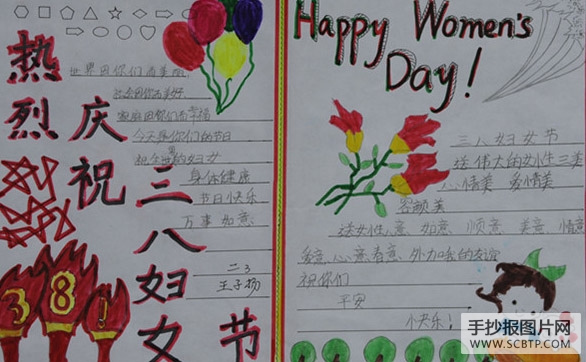 热烈庆祝三八妇女节
世界因你们而美丽,
社会因你而美好,
家庭因你们而幸福
今天是你们的节日
祝全世界的妇女
身体健康
节日快乐
万事如意、
二3
王子扬
38!
Happy Women's
Day!
三八妇女节
送伟大的女性三美
心情美 爱情美
容颜美
送女性人意、如意、顺意、美意、情意
爱意、心意、春意、外加我的友谊
祝你们
平安
小快乐!
手抄报图片网
WWW.SCBTP.COM